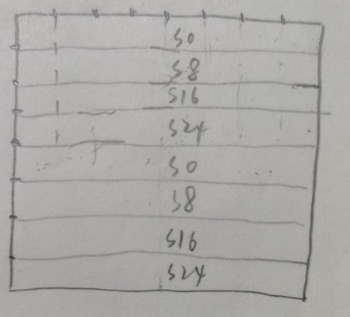 S0
S8
S16
S24
S0
S8
S16
S24